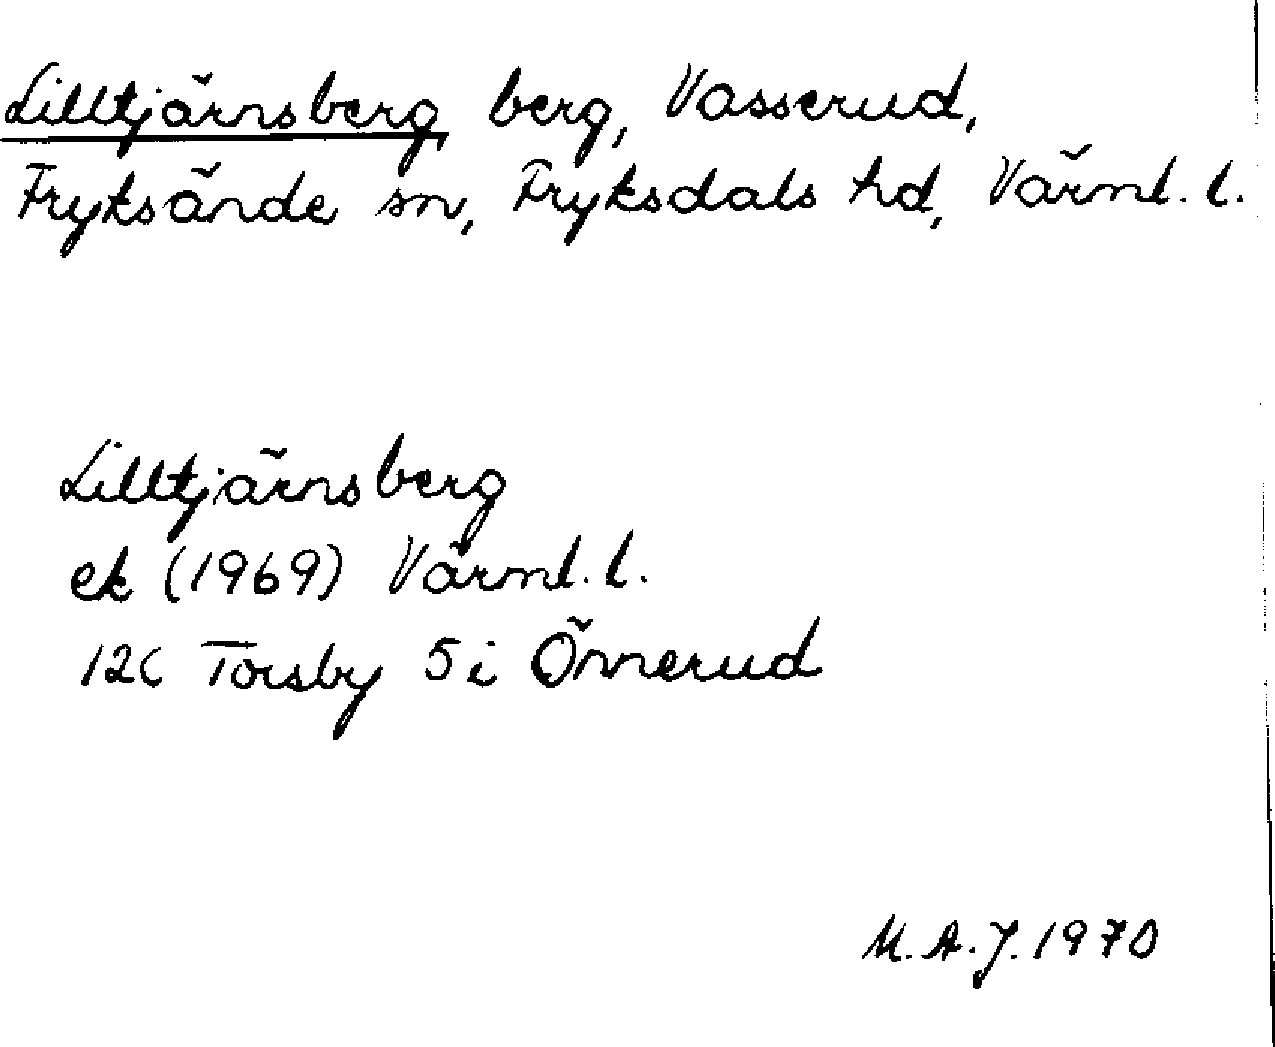 Lilltjärnsberg, berg, Vasserud,
Fryksände sn, Fryksdals hd, Värml. l.
Lilltjärnsberg
ek (1969) Värml. l.
12C Torsby 5i Önnerud
M.A.J. 1970